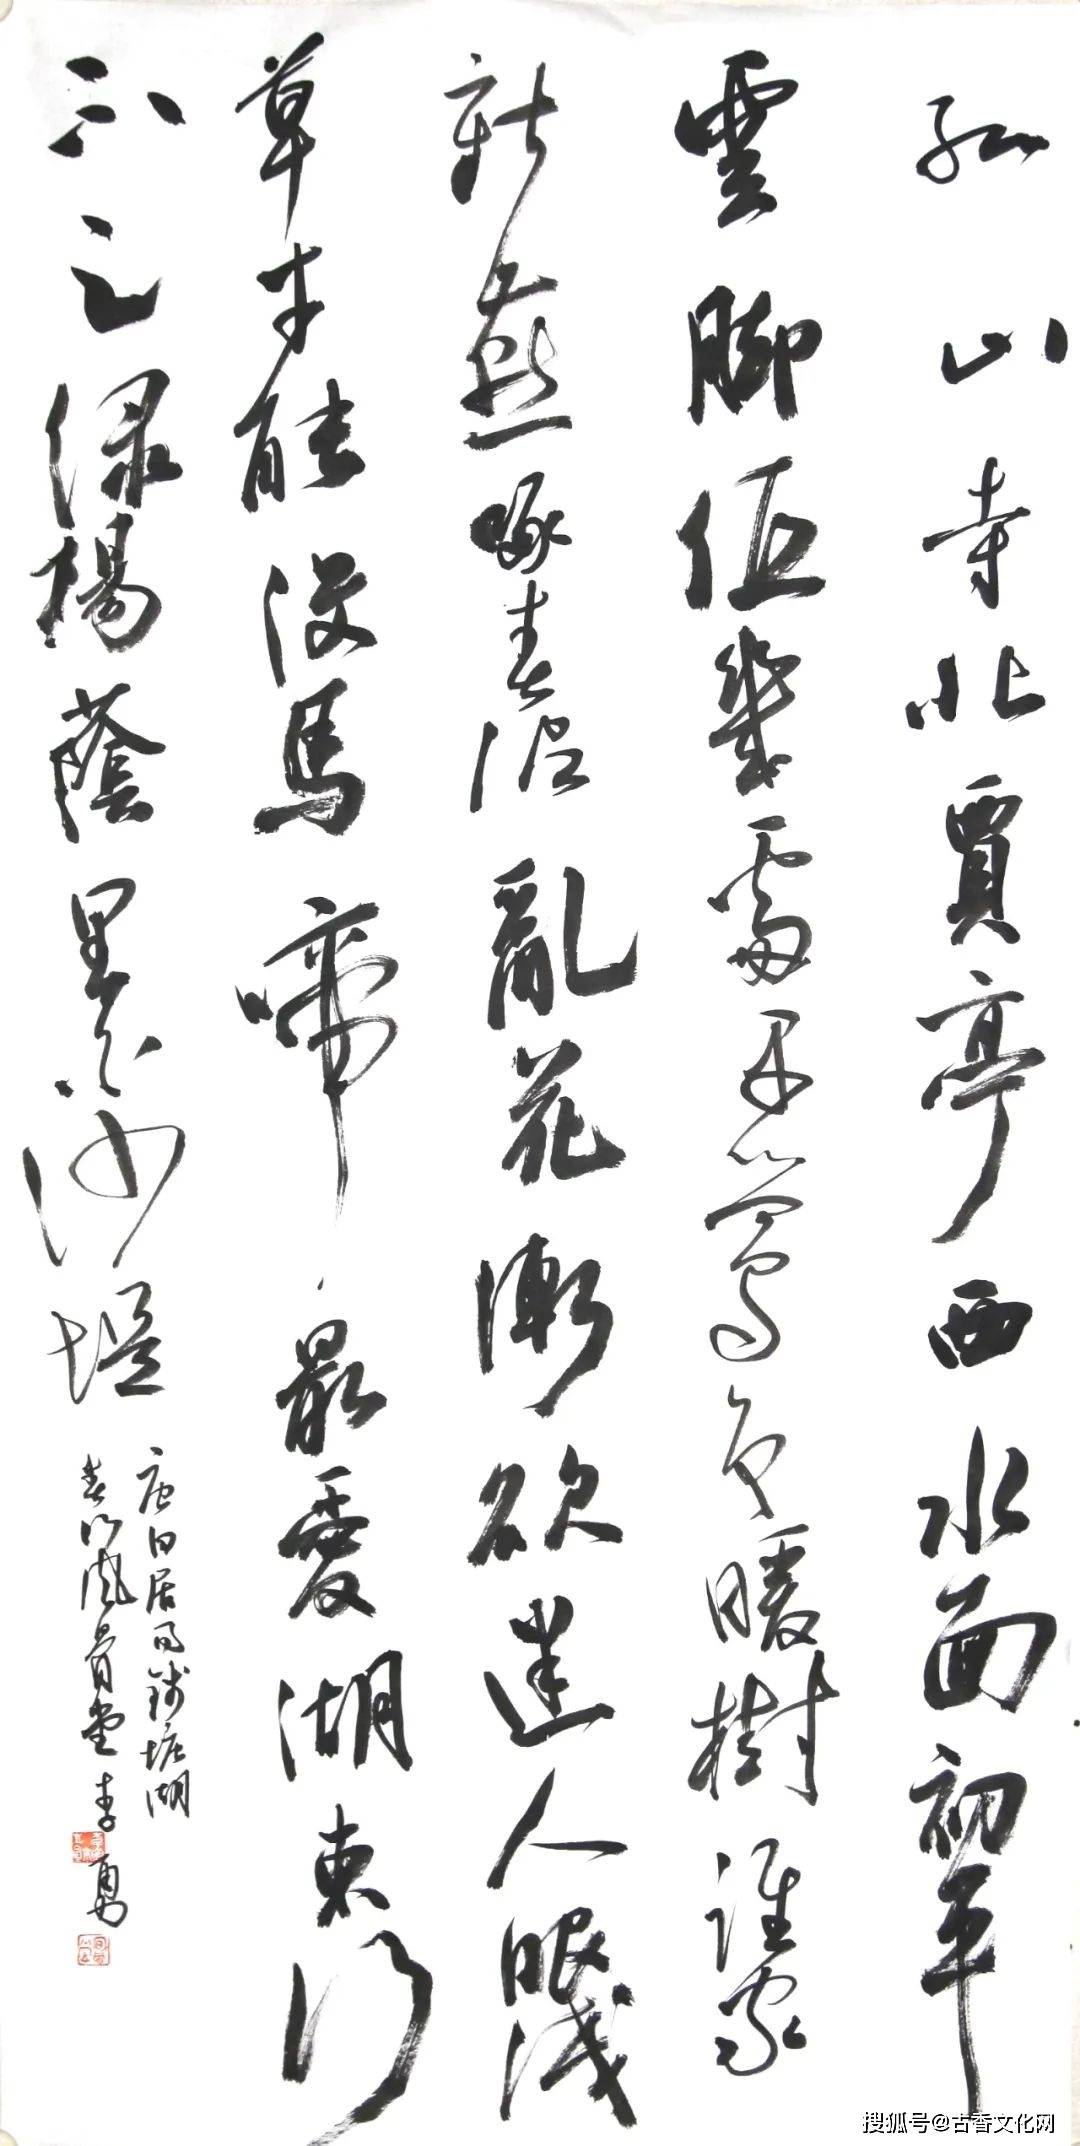 孤山寺北賈亭西水面初平
雲脚低幾處早鶯争暖樹誰家
新燕啄春泥亂花漸欲迷人眼淺
草才能没馬啼最愛湖東行
不足緑楊蔭里白沙堤
唐白居易錢塘湖
春行風骨堂李勇
搜狐号@古香文化网